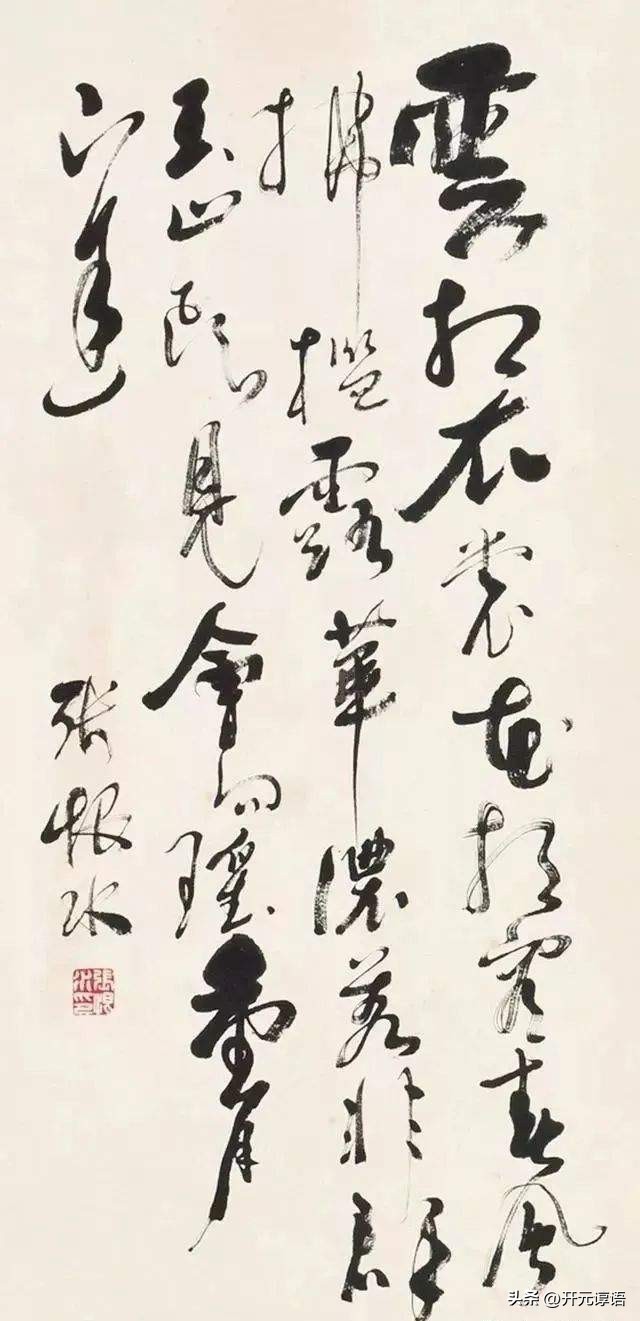 雲想衣裳花想容春風
拂檻露華濃若非群
玉山頭見會向瑤臺月
下逢
張恨水
張恨水印
头条 @开元谆语